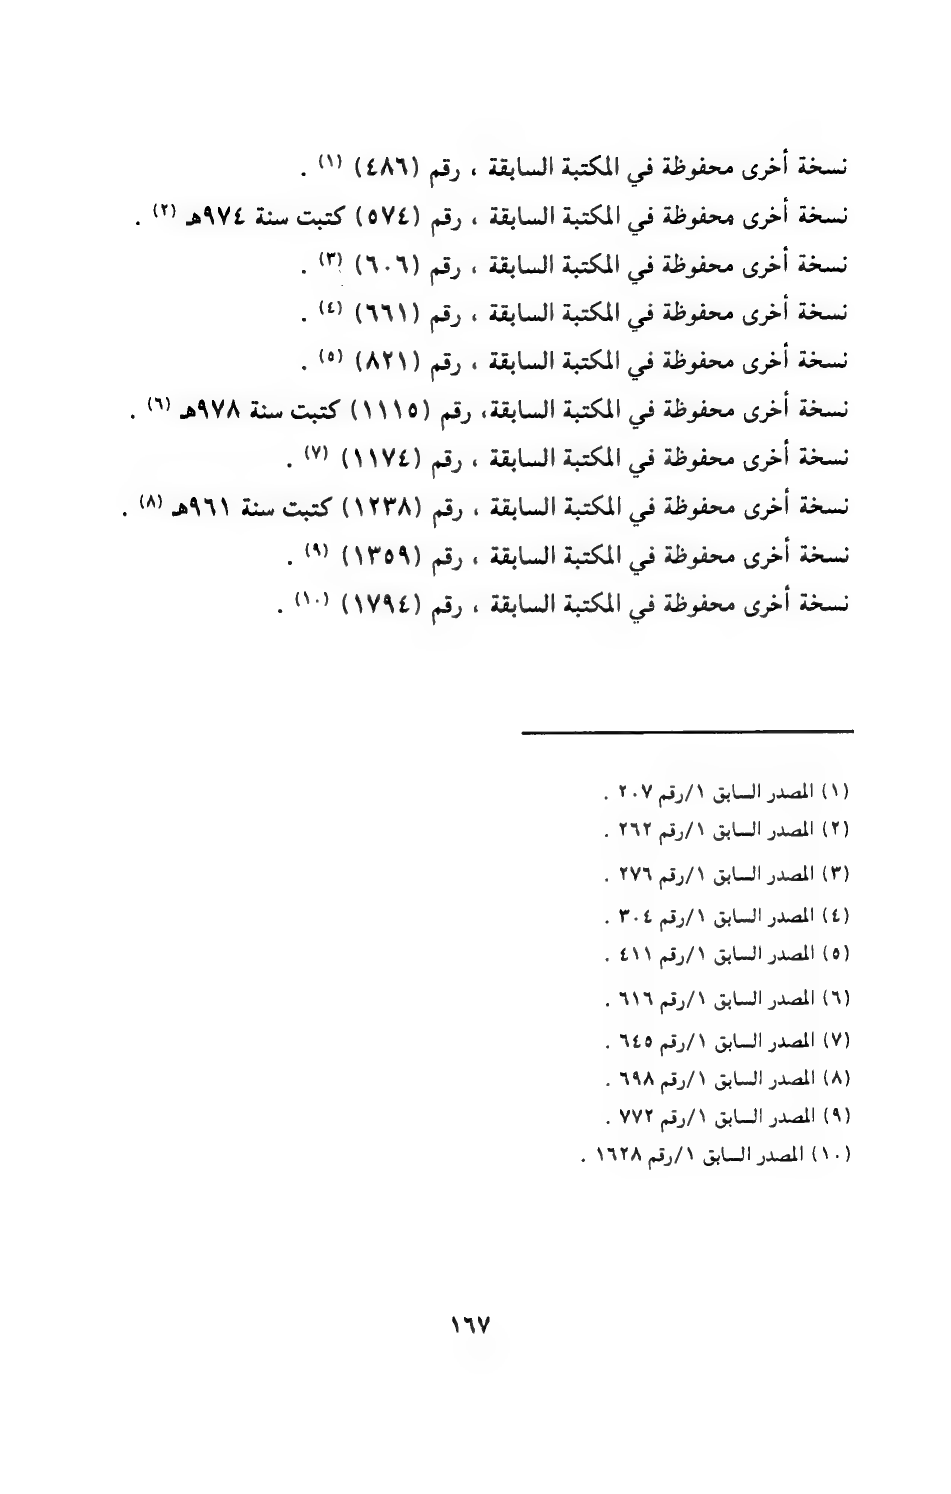 نسخة أخرى محفوظة في المكتبة السابقة ، رقم (٤٨٦) (١) .
نسخة أخرى محفوظة في المكتبة السابقة ، رقم (٥٧٤) كتبت سنة ٩٧٤هـ (٢) .
نسخة أخرى محفوظة في المكتبة السابقة ، رقم (٦٠٦) (٣) .
نسخة أخرى محفوظة في المكتبة السابقة ، رقم (٦٦١) (٤) .
نسخة أخرى محفوظة في المكتبة السابقة ، رقم (٨٢١) (٥) .
نسخة أخرى محفوظة في المكتبة السابقة، رقم (١١١٥) كتبت سنة ٩٧٨هـ (٦) .
نسخة أخرى محفوظة في المكتبة السابقة ، رقم (١١٧٤) (٧) .
نسخة أخرى محفوظة في المكتبة السابقة ، رقم (١٢٣٨) كتبت سنة ٩٦١هـ (٨) .
نسخة أخرى محفوظة في المكتبة السابقة ، رقم (١٣٥٩) (٩) .
نسخة أخرى محفوظة في المكتبة السابقة ، رقم (١٧٩٤) (١٠) .
(١) المصدر السابق ١/رقم ٢٠٧ .
(٢) المصدر السابق ١/رقم ٢٦٢ .
(٣) المصدر السابق ١/رقم ٢٧٦ .
(٤) المصدر السابق ١/رقم ٣٠٤ .
(٥) المصدر السابق ١/رقم ٤١١ .
(٦) المصدر السابق ١/رقم ٦١٦ .
(٧) المصدر السابق ١/رقم ٦٤٥ .
(٨) المصدر السابق ١/رقم ٦٩٨ .
(٩) المصدر السابق ١/رقم ٧٧٢ .
(١٠) المصدر السابق ١/رقم ١٦٢٨ .
١٦٧